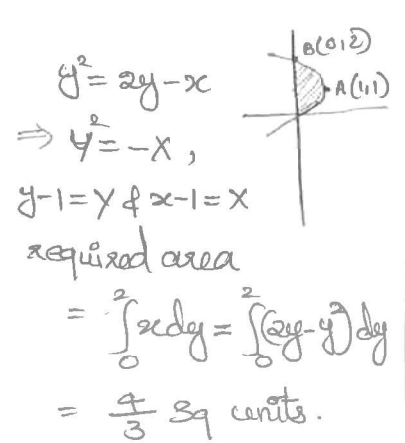 B(0,2)
y² = 2y-x
A(1,1)
⇒ Y² = -X ,
y-1 = Y & x-1 = X
required area
= ∫₀² xdy = ∫₀² (2y-y²) dy
= 4/3 sq units.